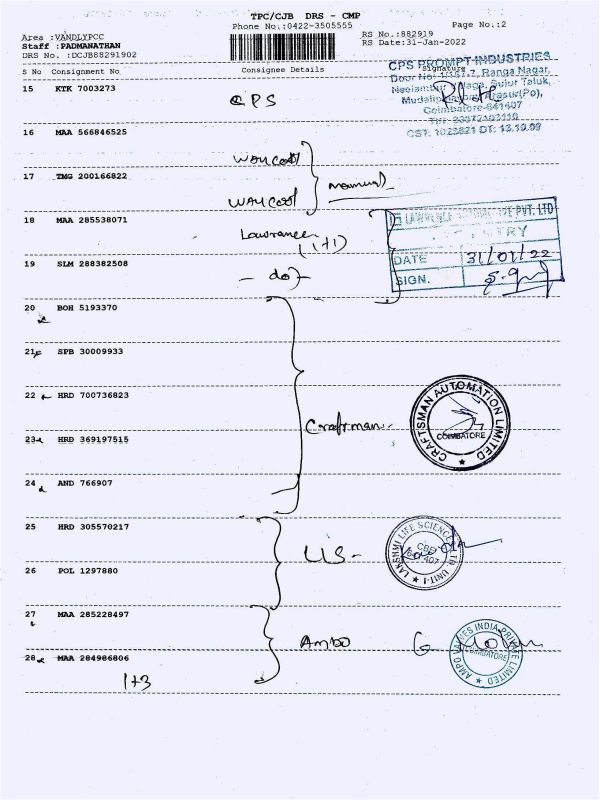 TPC/CJB DRS - CMP
Phone No.:0422-3505555
Page No.:2
Area :VANDLYPCC
Staff :PADMANATHAN
DRS No. :DCJB88291902
RS No.:882919
RS Date:31-Jan-2022
S No Consignment No Consignee Details Signature
CPS PROMPT INDUSTRIES
Ranga Nagar,
Sulur Taluk,
Coimbatore-641407
CST: 1023821 DT: 13.10.99
15 KTK 7003273
CPS
16 MAA 566846525
WAYCOOL
17 TMG 200166822
manual
WAYCOOL
18 MAA 285538071
Lawrance
(1+1)
PVT. LTD
ENTRY
DATE 31/01/22
SIGN.
19 SLM 288382508
- do -
20 BOH 5193370
21 SPB 30009933
22 HRD 700736823
Craftman
CRAFTSMAN AUTOMATION LIMITED
COIMBATORE
23 HRD 369197515
24 AND 766907
25 HRD 305570217
LLS -
LAKSHMI LIFE SCIENCES LTD. UNIT-I
26 POL 1297880
27 MAA 285228497
Ampo
AMPO VALVES INDIA PRIVATE LIMITED
COIMBATORE
28 MAA 284986806
1+3